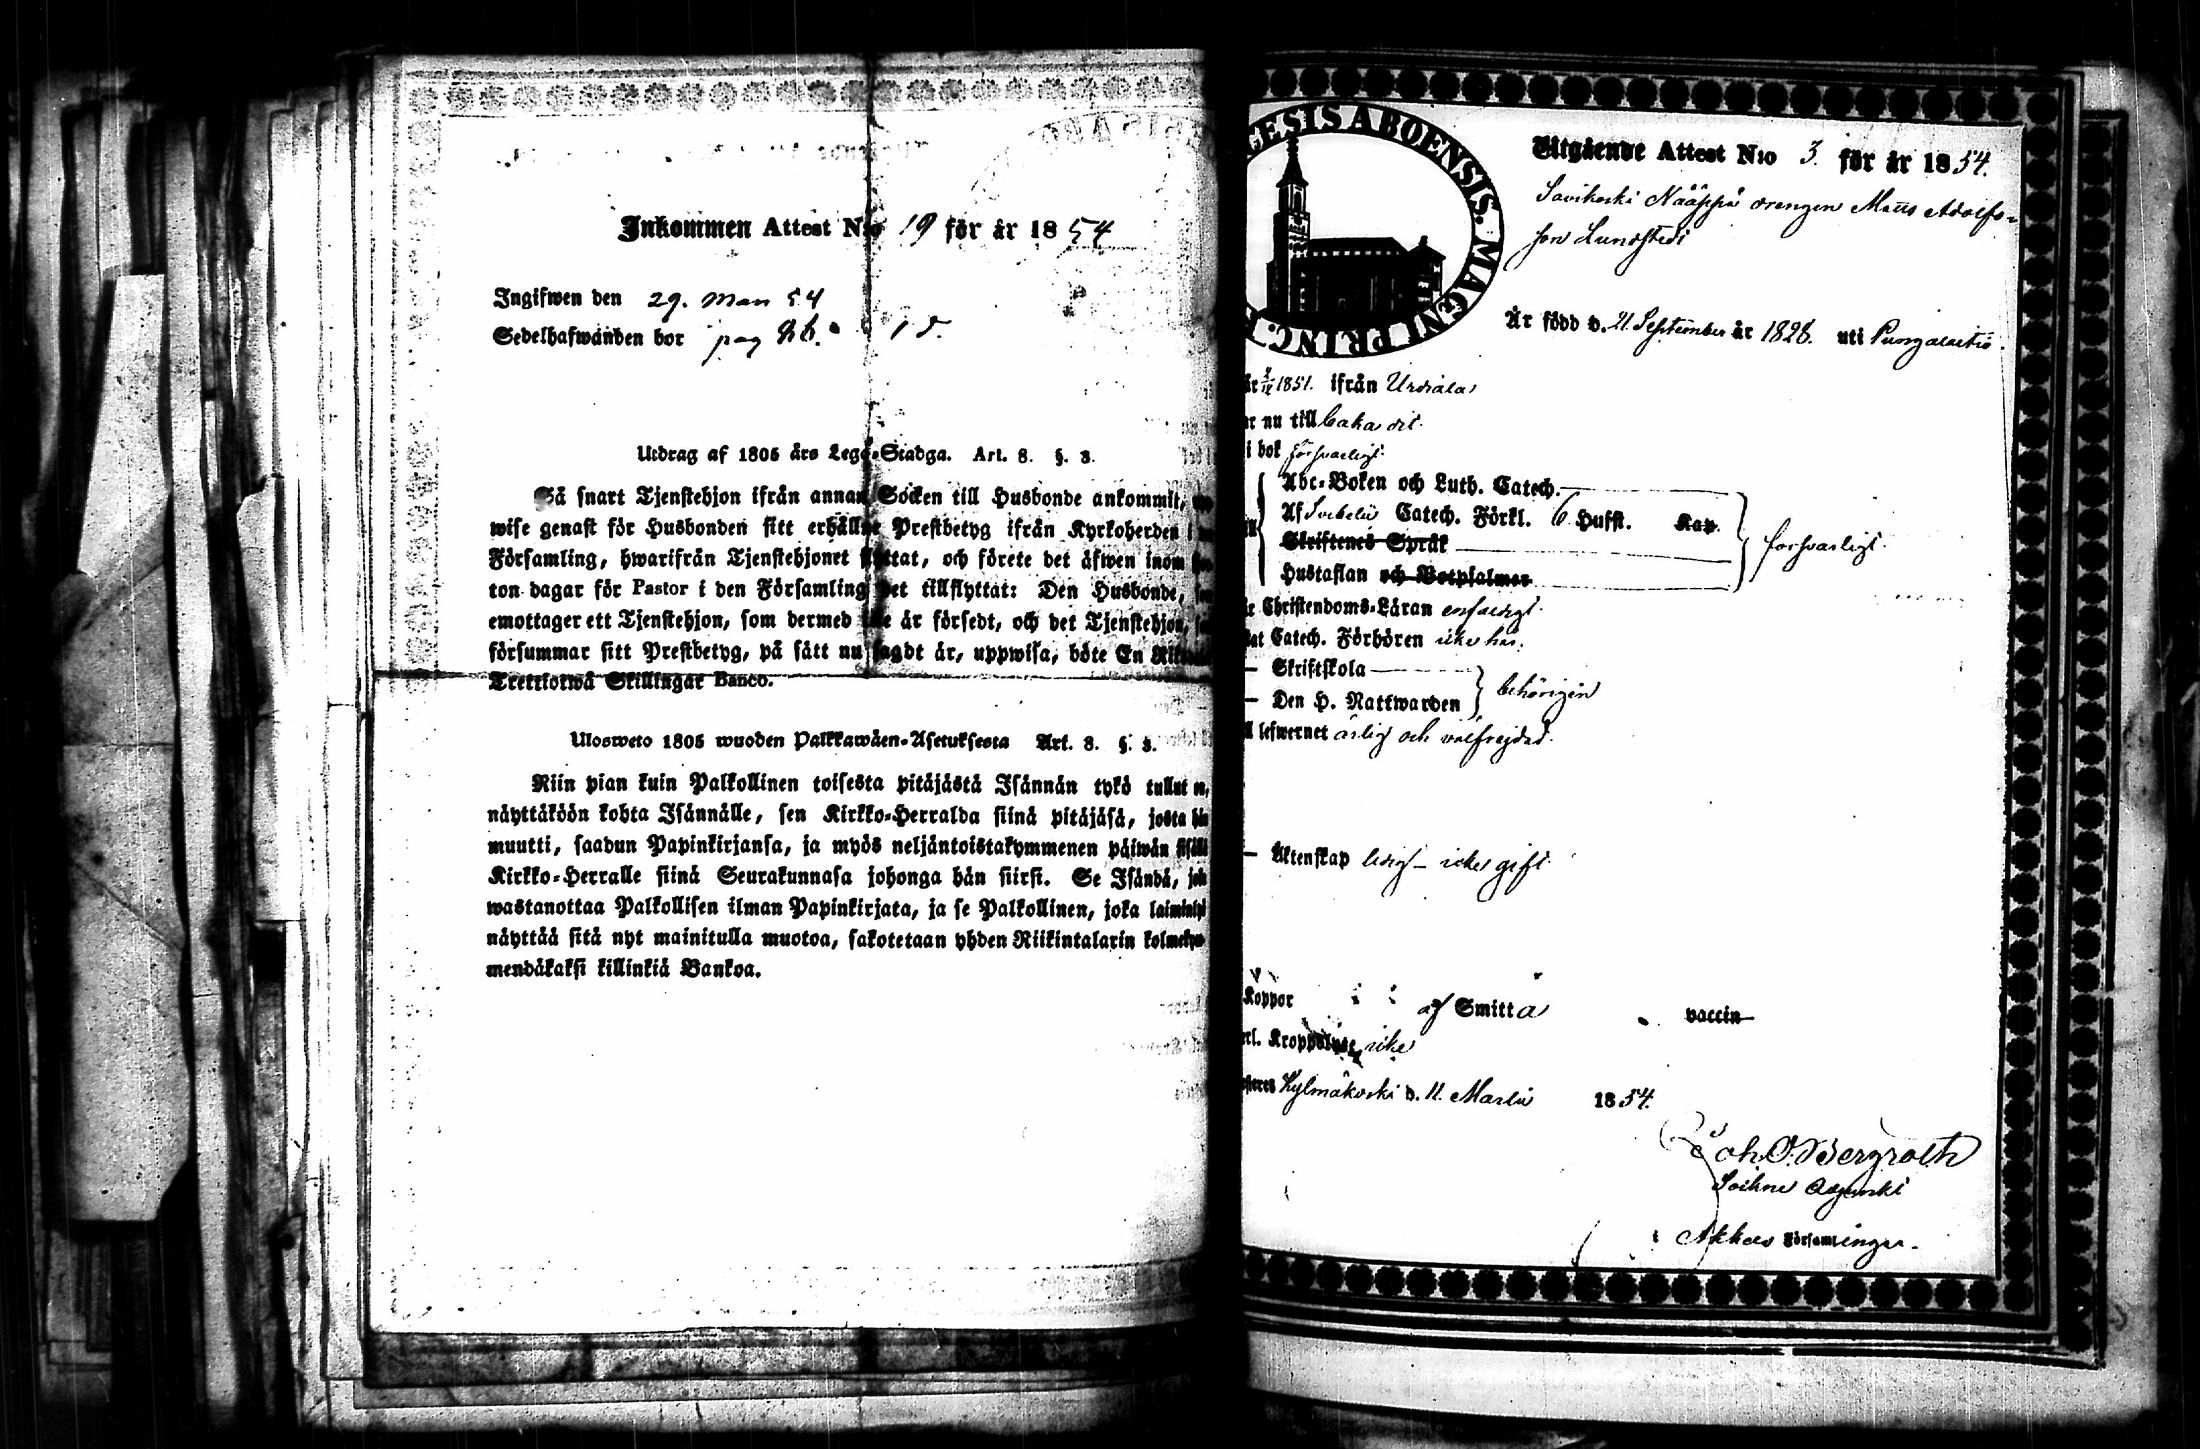 Inkommen Attest N:o 19 för år 1854
Ingifwen den 29. Mars 54
Sedelhafwanden bor pag 86.
Utdrag af 1805 års Lego-Stadga. Art. 8. §. 3.
Så snart Tjenstehjon ifrån annan Socken till Husbonde ankommit,
wise genast för Husbonden sitt erhållne Prestbetyg ifrån Kyrkoherden i
Församling, hwarifrån Tjenstehjonet flyttat, och förete det äfwen inom
ton dagar för Pastor i den Församling det tillflyttat: Den Husbonde,
emottager ett Tjenstehjon, som dermed icke är försedt, och det Tjenstehjon,
försummar sitt Prestbetyg, på sätt nu sagdt är, uppwisa, böte En Riksdal
Trettiotwå Skillingar Banco.
Ulosweto 1805 wuoden Palkkawäen-Asetuksesta Art. 8. §. 3.
Niin pian kuin Palkollinen toisesta pitäjästä Isännän tykö tullut on,
näyttäköön kohta Isännälle, sen Kirkko-Herralda siinä pitäjäsä, josta hän
muutti, saadun Papinkirjansa, ja myös neljäntoistakymmenen päiwän sisällä
Kirkko-Herralle siinä Seurakunnasa johonga hän siirsi. Se Isändä, joka
wastanottaa Palkollisen ilman Papinkirjata, ja se Palkollinen, joka laiminlyö
näyttää sitä nyt mainitulla muotoa, sakotetaan yhden Riikintalarin kolmekym
mendäkaksi killinkiä Bankoa.
CESIS ABOENSIS. MAGNI PRINC.
Utgående Attest N:o 3. för år 1854.
Savikoski Nääppä drengen Matts Adolfs-
son Lundstedt
Är född d. 11 September år 1826. uti Pungalaitio.
1851. ifrån Urdiala
nu till baka dit.
i bok försvarligt.
Abc-Boken och Luth. Catech.
Af Svebelii Catech. Förkl. 6 Hufst. Kap.
Skriftenes Språk
försvarligt.
Hustaflan och Botpsalmer
Christendoms-Läran enfaldigt.
Catech. Förhören icke här.
Skriftskola
Den H. Nattwarden
behörigen
lefwernet ärlig och välfrejdad.
Äktenskap ledig - icke gift
Koppor af Smitta vaccin
Kroppslyte icke
Kylmäkoski d. 11. Martii 1854.
Joh. O. Bergroth
i Akkas Församlingar.